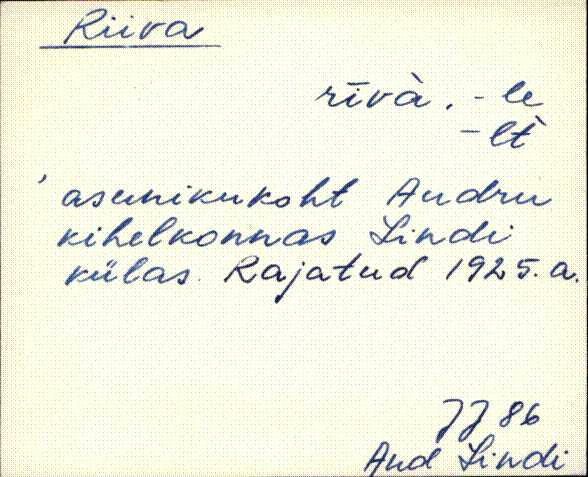 Riiva
rīvà, -le
-lt̀
'asunikukoht Audru
kihelkonnas Lindi
külas. Rajatud 1925. a.
JJ 86
Aud Lindi